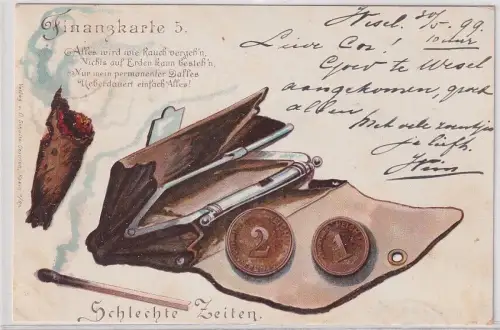 Finanzkarte 5.
Alles wird wie Rauch vergeh'n,
Nichts auf Erden kann besteh'n,
Nur mein permanenter Dalles
Ueberdauert einfach Alles!
Wesel. 30/5 99
10 uur
Lieve Cor!
Goed te Wesel
aangekomen, groet
allen.
Met vele
je liefh.
2
1
Schlechte Zeiten.